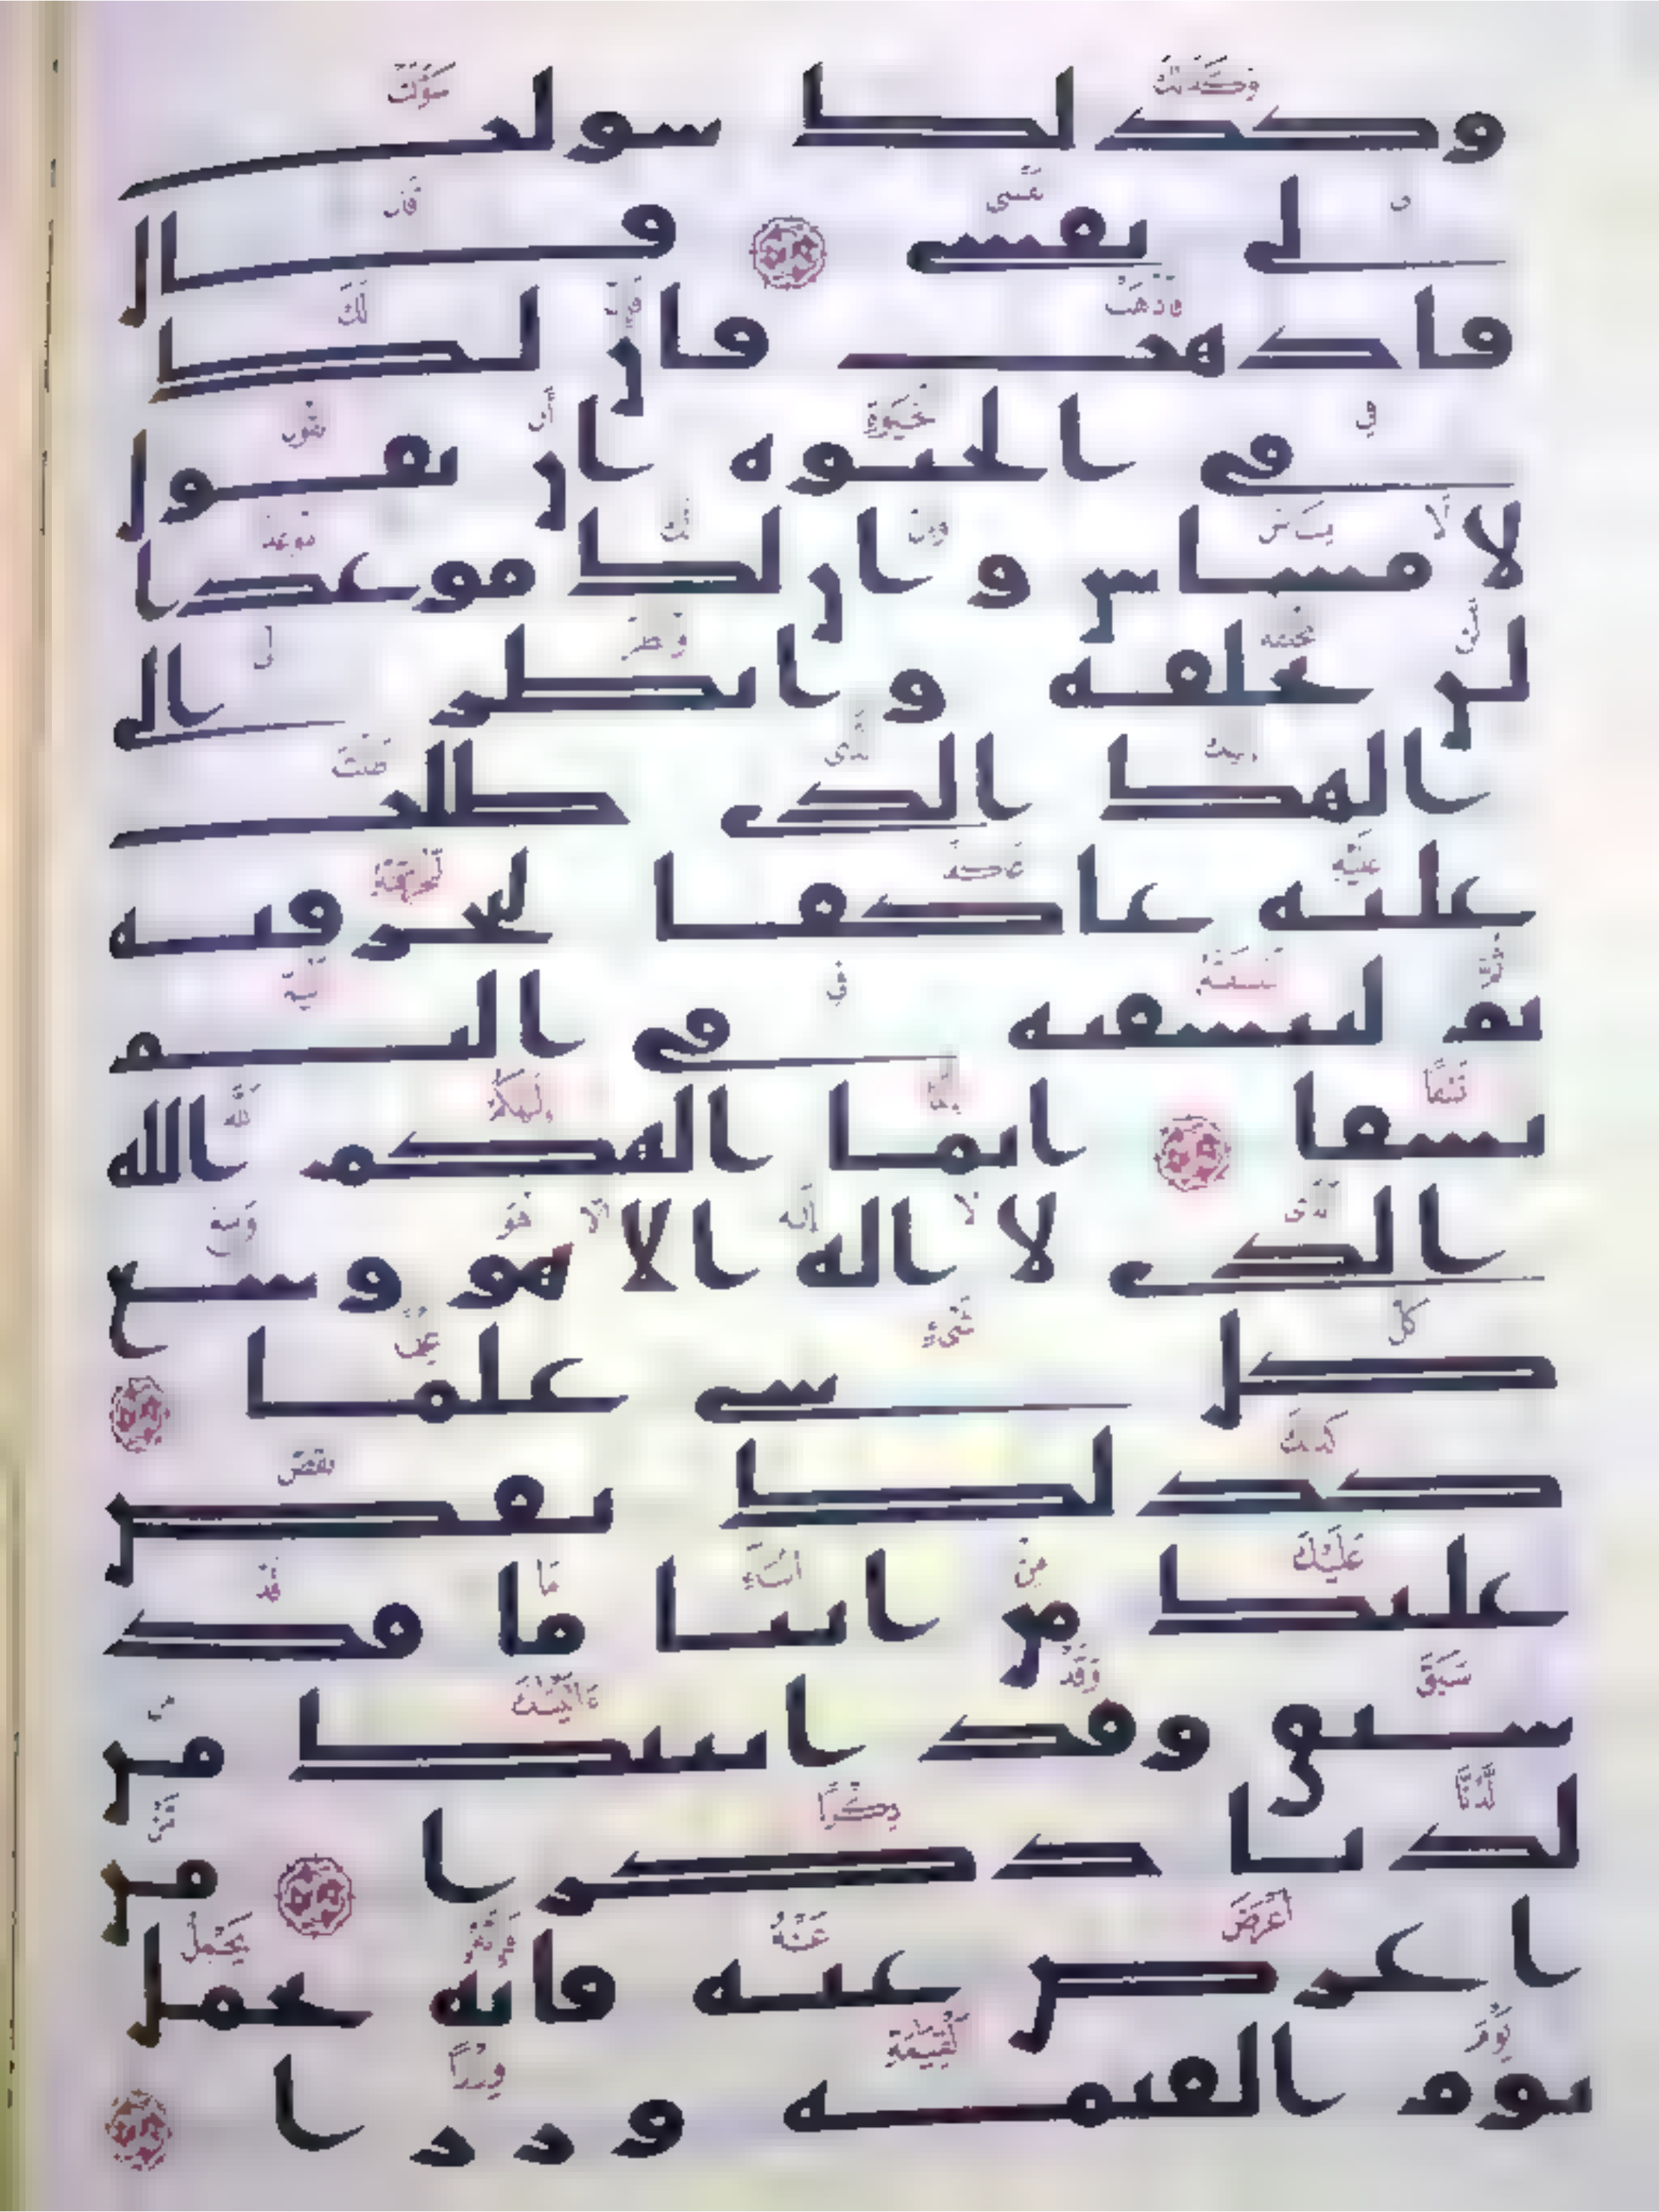 وكذلك سولت
لي نفسي قال
فاذهب فان لك
في الحيوه ان تقول
لا مساس وان لك موعدا
لن تخلفه وانظر الى
الهك الذي ظلت
عليه عاكفا لنحرقنه
ثم لننسفنه في اليم
نسفا انما الهكم الله
الذي لا اله الا هو وسع
كل شي علما
كذلك نقص
عليك من انبا ما قد
سبق وقد اتينك من
لدنا ذكرا من
اعرض عنه فانه يحمل
يوم القيمه وزرا